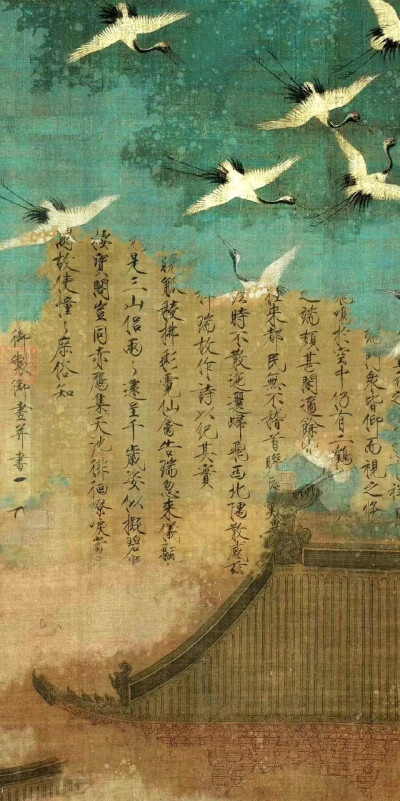 衆皆仰而視之倏
飛鳴於空中仍有二鶴
之端頗甚閑適餘
往來都民無不稽首瞻
經時不散迤邐歸飛西北隅散感茲
祥瑞故作詩以紀其實
觚稜拂彩霓仙禽告瑞忽來儀飄
元是三山侶兩〻還呈千歲姿似擬碧鸞
棲寶閣豈同赤鴈集天池徘徊嘹唳當丹
闕故使憧〻庶俗知
御製御畫并書